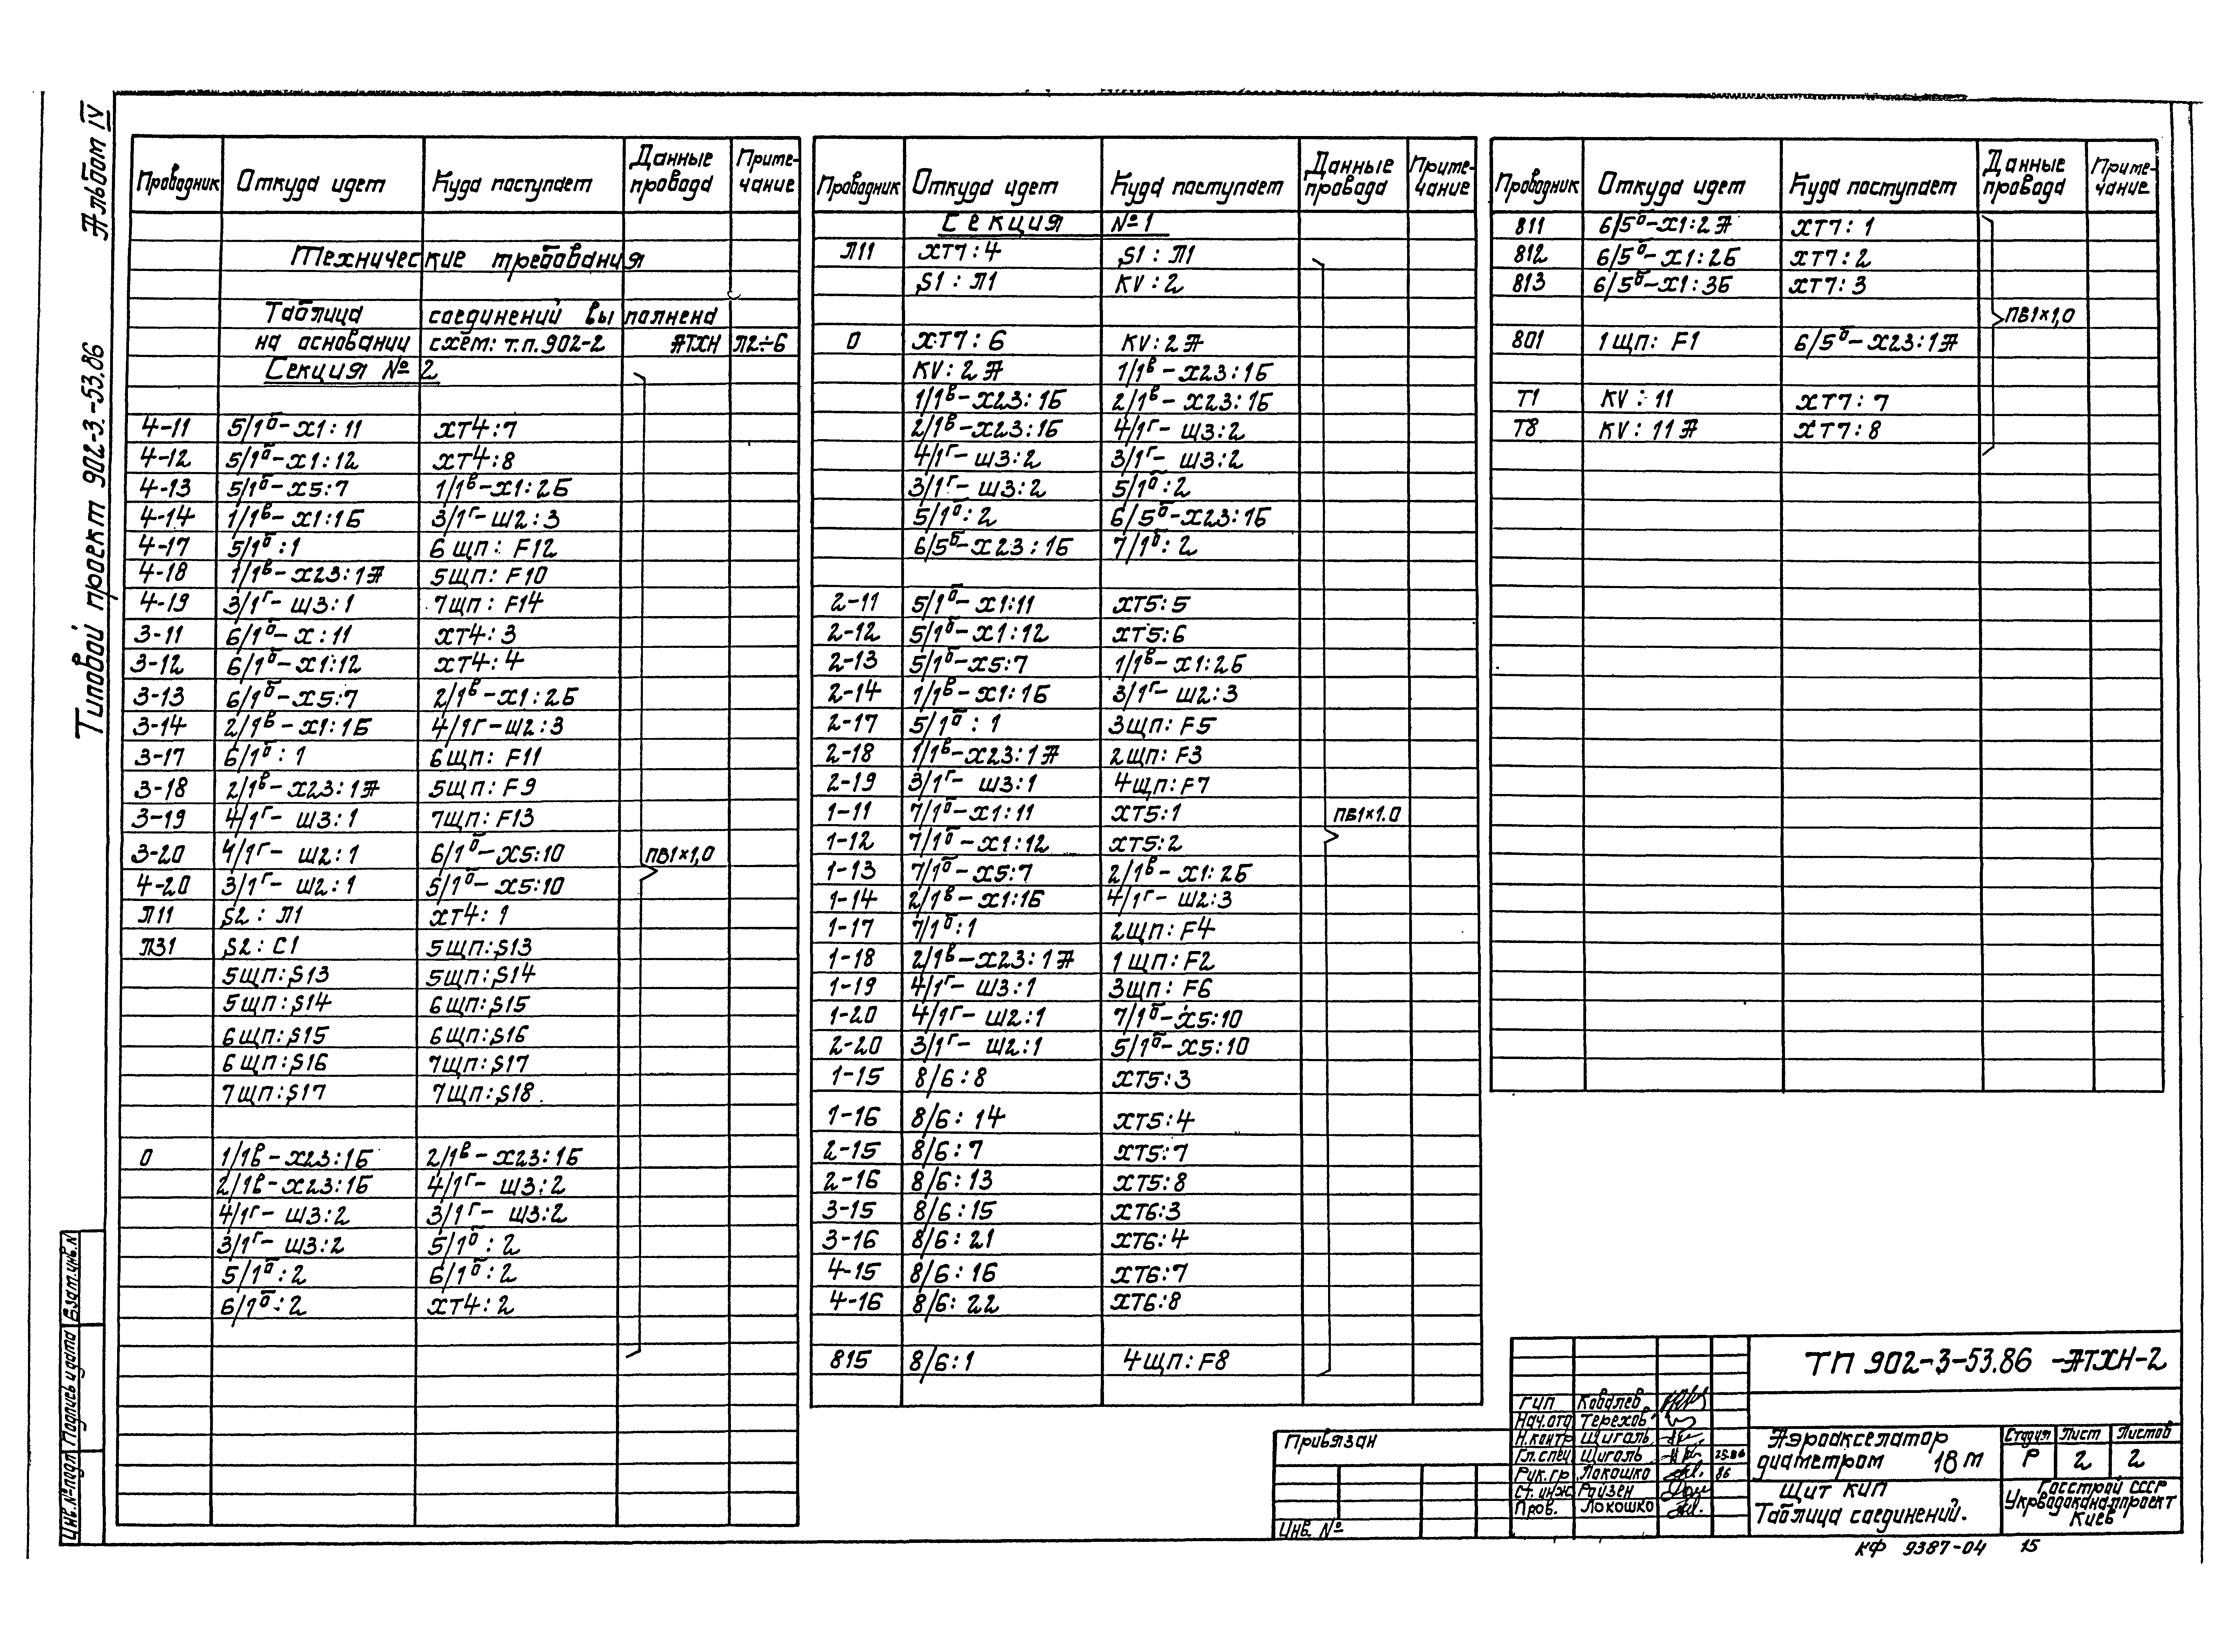 Альбом IV
Типовой проект 902-3.-53.86
Проводник Откуда идет Куда поступает Данные провода Приме-чание
Технические требования
Таблица соединений выполнена
на основании схем: т.п. 902-2 АТХН Л2÷6
Секция №2
4-11 5/1б-х1:11 ХТ4:7
4-12 5/1б-х1:12 ХТ4:8
4-13 5/1б-х5:7 1/1в-х1:2Б
4-14 1/1в-х1:1Б 3/1г-Ш2:3
4-17 5/1б:1 6ЩП:F12
4-18 1/1в-х23:1А 5ЩП:F10
4-19 3/1г-Ш3:1 7ЩП:F14
3-11 6/1б-х:11 ХТ4:3
3-12 6/1б-х1:12 ХТ4:4
3-13 6/1б-х5:7 2/1в-х1:2Б
3-14 2/1в-х1:1Б 4/1г-Ш2:3
3-17 6/1б:1 6ЩП:F11
3-18 2/1в-х23:1А 5ЩП:F9
3-19 4/1г-Ш3:1 7ЩП:F13
3-20 4/1г-Ш2:1 6/1б-х5:10 ПВ1×1,0
4-20 3/1г-Ш2:1 5/1б-х5:10
Л11 S2:Л1 ХТ4:1
Л31 S2:С1 5ЩП:S13
5ЩП:S13 5ЩП:S14
5ЩП:S14 6ЩП:S15
6ЩП:S15 6ЩП:S16
6ЩП:S16 7ЩП:S17
7ЩП:S17 7ЩП:S18
0 1/1в-х23:1Б 2/1в-х23:1Б
2/1в-х23:1Б 4/1г-Ш3:2
4/1г-Ш3:2 3/1г-Ш3:2
3/1г-Ш3:2 5/1б:2
5/1б:2 6/1б:2
6/1б:2 ХТ4:2
Проводник Откуда идет Куда поступает Данные провода Приме-чание
Секция №1
Л11 ХТ7:4 S1:Л1
S1:Л1 KV:2
0 ХТ7:6 KV:2А
KV:2А 1/1в-х23:1Б
1/1в-х23:1Б 2/1в-х23:1Б
2/1в-х23:1Б 4/1г-Ш3:2
4/1г-Ш3:2 3/1г-Ш3:2
3/1г-Ш3:2 5/1б:2
5/1б:2 6/5б-х23:1Б
6/5б-х23:1Б 7/1б:2
2-11 5/1б-х1:11 ХТ5:5
2-12 5/1б-х1:12 ХТ5:6
2-13 5/1б-х5:7 1/1в-х1:2Б
2-14 1/1в-х1:1Б 3/1г-Ш2:3
2-17 5/1б:1 3ЩП:F5
2-18 1/1в-х23:1А 2ЩП:F3
2-19 3/1г-Ш3:1 4ЩП:F7
1-11 7/1б-х1:11 ХТ5:1 ПВ1×1.0
1-12 7/1б-х1:12 ХТ5:2
1-13 7/1б-х5:7 2/1в-х1:2Б
1-14 2/1в-х1:1Б 4/1г-Ш2:3
1-17 7/1б:1 2ЩП:F4
1-18 2/1в-х23:1А 1ЩП:F2
1-19 4/1г-Ш3:1 3ЩП:F6
1-20 4/1г-Ш2:1 7/1б-х5:10
2-20 3/1г-Ш2:1 5/1б-х5:10
1-15 8/6:8 ХТ5:3
1-16 8/6:14 ХТ5:4
2-15 8/6:7 ХТ5:7
2-16 8/6:13 ХТ5:8
3-15 8/6:15 ХТ6:3
3-16 8/6:21 ХТ6:4
4-15 8/6:16 ХТ6:7
4-16 8/6:22 ХТ6:8
815 8/6:1 4ЩП:F8
Проводник Откуда идет Куда поступает Данные провода Приме-чание
811 6/5б-х1:2А ХТ7:1
812 6/5б-х1:2Б ХТ7:2
813 6/5б-х1:3Б ХТ7:3
ПВ1×1,0
801 1ЩП:F1 6/5б-х23:1А
Т1 KV:11 ХТ7:7
Т8 KV:11А ХТ7:8
Привязан
Инв. №
ТП 902-3-53.86 -АТХН-2
ГИП Ковалев
Нач.отд Терехов
Н.контр Щиголь
Гл.спец Щиголь 25.86
Рук.гр. Локошко 86
Ст.инж. Райзен
Пров. Локошко
Аэроакселатор
диаметром 18м
Стадия Лист Листов
Р 2 2
Щит КИП
Таблица соединений.
Госстрой СССР
Укрводоканалпроект
Киев
КФ 9387-04 15
Инв.№подл Подпись и дата Взам.инв.№